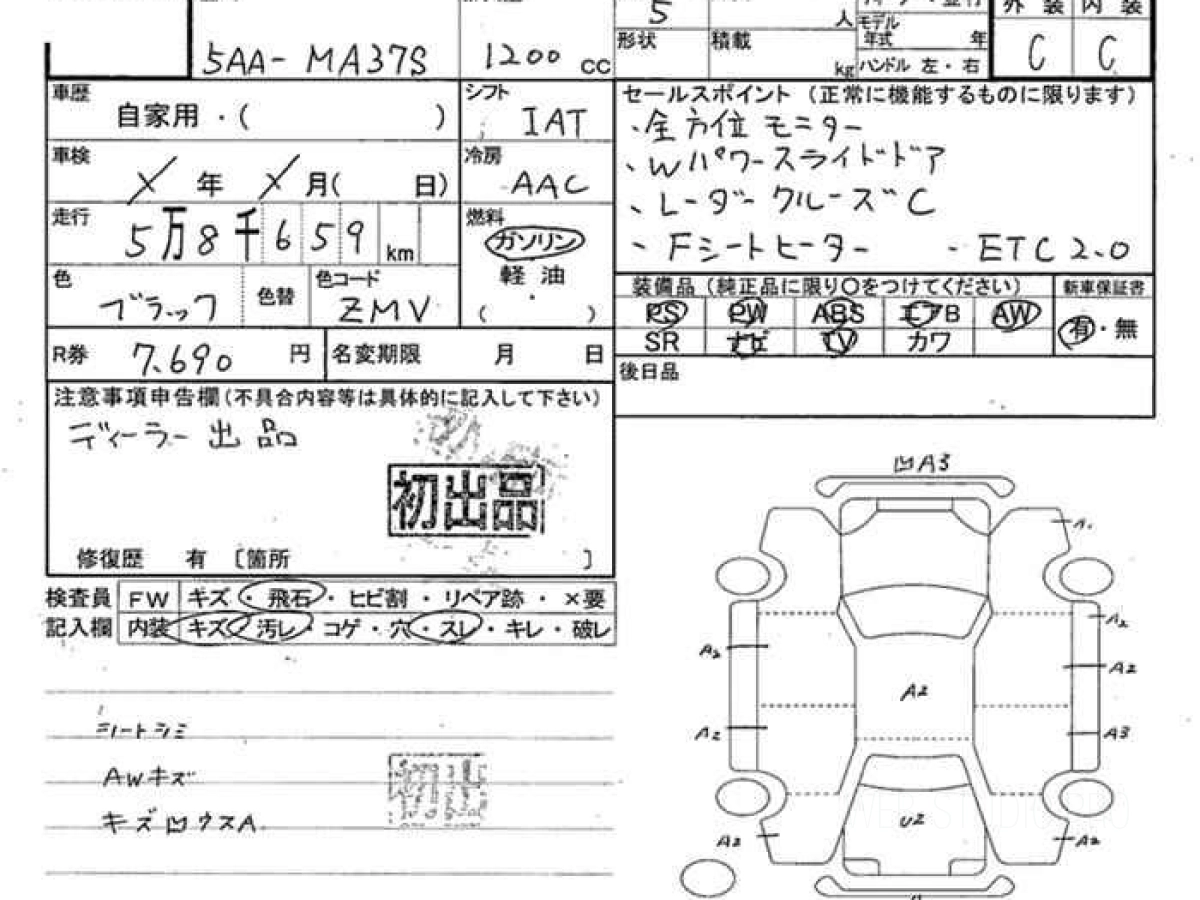 5
人
モデル
年式 年
外装 内装
形状 積載 kg
ハンドル 左・右
C C
5AA- MA37S
1200 cc
車歴 自家用・( )
シフト IAT
車検 年 月( 日)
冷房 AAC
走行 5万8千659 km
燃料 ガソリン
軽油
( )
色 ブラック 色替 色コード ZMV
R券 7,690 円 名変期限 月 日
セールスポイント (正常に機能するものに限ります)
、全方位モニター
、Wパワースライドドア
、レーダークルーズC
、Fシートヒーター - ETC2.0
装備品 (純正品に限り○をつけてください) 新車保証書
PS PW ABS エアB AW 有・無
SR ナビ TV カワ
後日品
注意事項申告欄(不具合内容等は具体的に記入して下さい)
ディーラー出品
初出品
修復歴 有 [箇所 ]
検査員 FW キズ・飛石・ヒビ割・リペア跡・×要
記入欄 内装 キズ・汚レ・コゲ・穴・スレ・キレ・破レ
シートシミ
AWキズ
キズ凹ウスA
凹A3
A1
A2
A2 A2
A2
A2 A3
U2
A2 A2